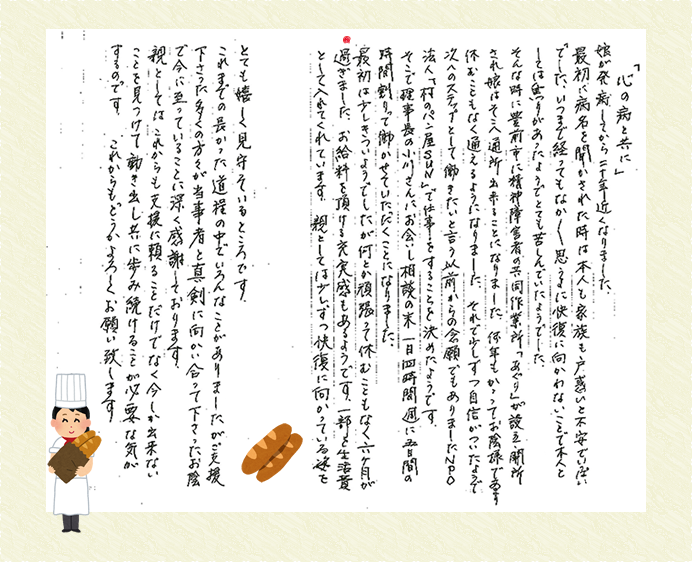 「心の病と共に」
娘が発病してから二十年近くなりました。
最初に病名を聞かされた時は本人も家族も戸惑いと不安でいっぱい
でした。いつまで経ってもなかなか思うように快復に向かわないことで本人と
しては焦りがあったようでとても苦しんでいたようでした。
そんな時に豊前市に精神障害者の共同作業所「あぐり」が設立開所
され娘はそこへ通所出来ることになりました。何年もかかってお陰様であまり
休むこともなく通えるようになりました。それで少しずつ自信がついたようで
次へのステップとして働きたいと言う以前からの念願でもありましたNPO
法人「村のパン屋SUN」で仕事をすることを決めたようです。
そこで理事長の小川さんにお会いし相談の末一日四時間週に五日間の
時間割りで働かせていただくことになりました。
最初は少しきついようでしたが何とか頑張って休むこともなく六ヶ月が
過ぎました。お給料を頂ける充実感もあるようです。一部を生活費
として入れてくれています。親としては少しずつ快復に向かっている娘を
とても嬉しく見守っているところです。
これまでの長かった道程の中でいろんなことがありましたがご支援
下さった多くの方々が当事者と真剣に向かい合って下さったお陰
で今に至っていることに深く感謝しております。
親としてはこれからも支援に頼ることだけでなく今しか出来ない
ことを見つけて動き出し共に歩み続けることが必要な気が
するのです。これからもどうかよろしくお願い致します。